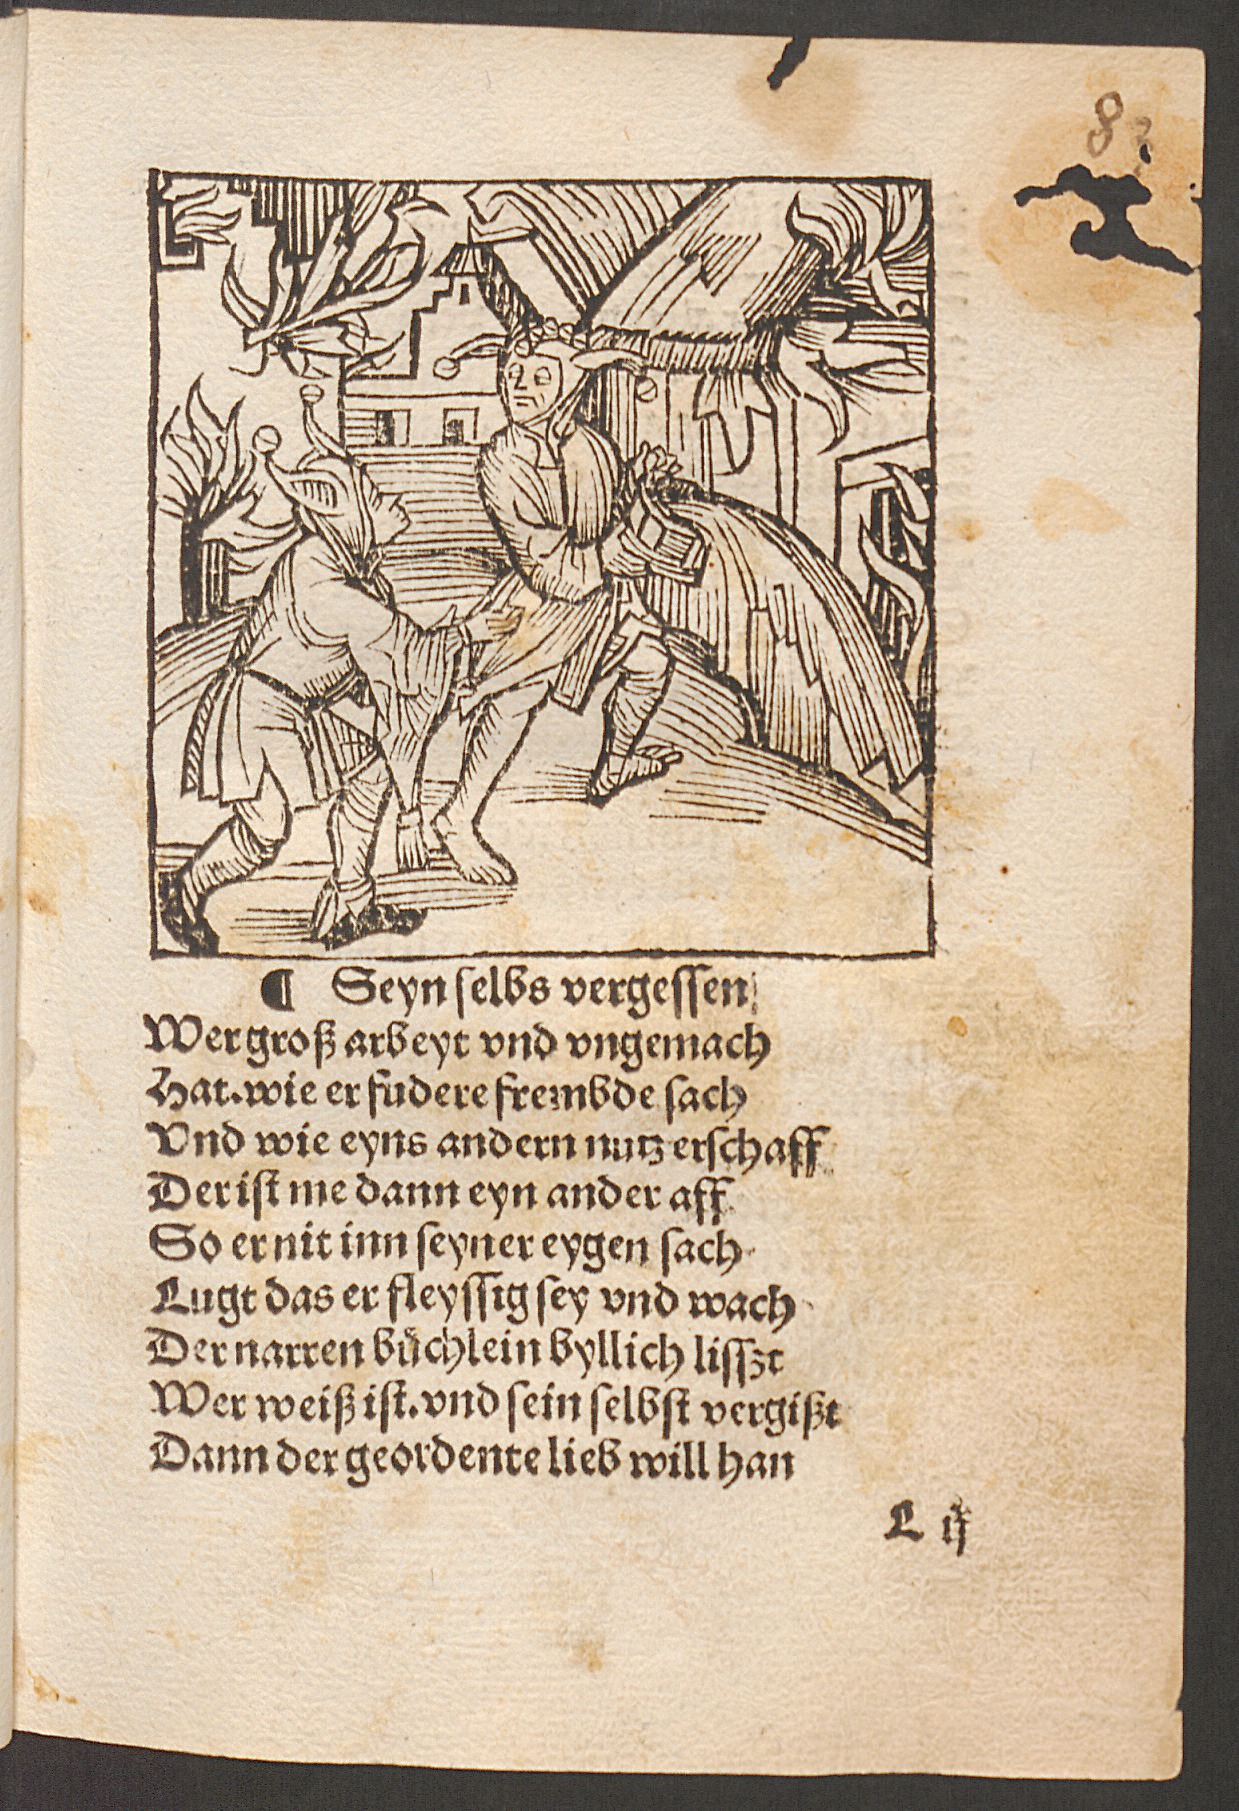 83
¶ Seyn selbs vergessen
Wer groß arbeyt vnd vngemach
Hat. wie er fudere frembde sach
Vnd wie eyns andern nutz erschaff
Der ist me dann eyn ander aff
So er nit inn seyner eygen sach
Lugt das er fleyssig sey vnd wach
Der narren bůchlein byllich lisszt
Wer weiß ist. vnd sein selbst vergißt
Dann der geordente lieb will han
L ij